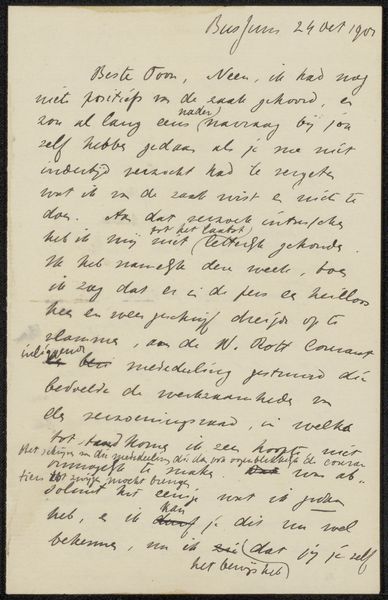 Bussum 24 Oct 190
Beste Toon, Neen, ik had nog
niet positiefs van de zaak gehoord, en
zou al lang eens nader navraag bij jou
zelf hebben gedaan als je me niet
indertijd verzocht had te vergeten
wat ik van de zaak wist en niets te
doen. Aan dat verzoek intusschen
heb ik mij niet tot het laatst letterlijk gehouden
Ik heb namelijk deze week, toen
ik zag dat er in de pers een heilloos
heen en weer geschrijf dreigde op te
vlammen, aan de N. Rott Courant
mededeeling gestuurd die
bedoelde de werkzaamheden van
de verzoeningsraad, in welke
tot, ik een niet
Het schijnen van die mededeeling die dan ook oogenblikkelijk de couran
tien tot zwijgen mocht brengen
onmogelijk te maken. was ab-
soluut het eenige wat ik gedaan
heb, en ik kan je dit nu wel
bekennen, nu ik dat jij je zelf
het bewijs heb